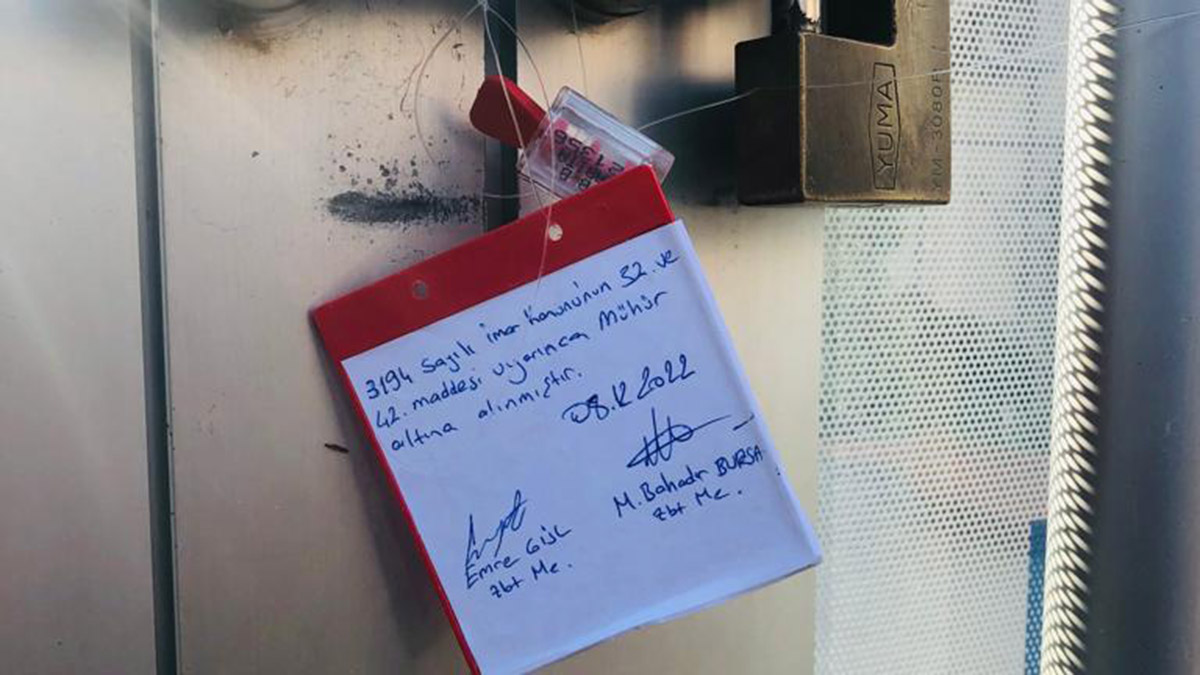 YUMA
YM-3080P
3194 Sayılı İmar Kanunu'nun 32. ve
42. maddesi uyarınca Mühür
altına alınmıştır.
08.12.2022
M. Bahadır BURSA
zbt Me.
Emre GİŞL
zbt Me.